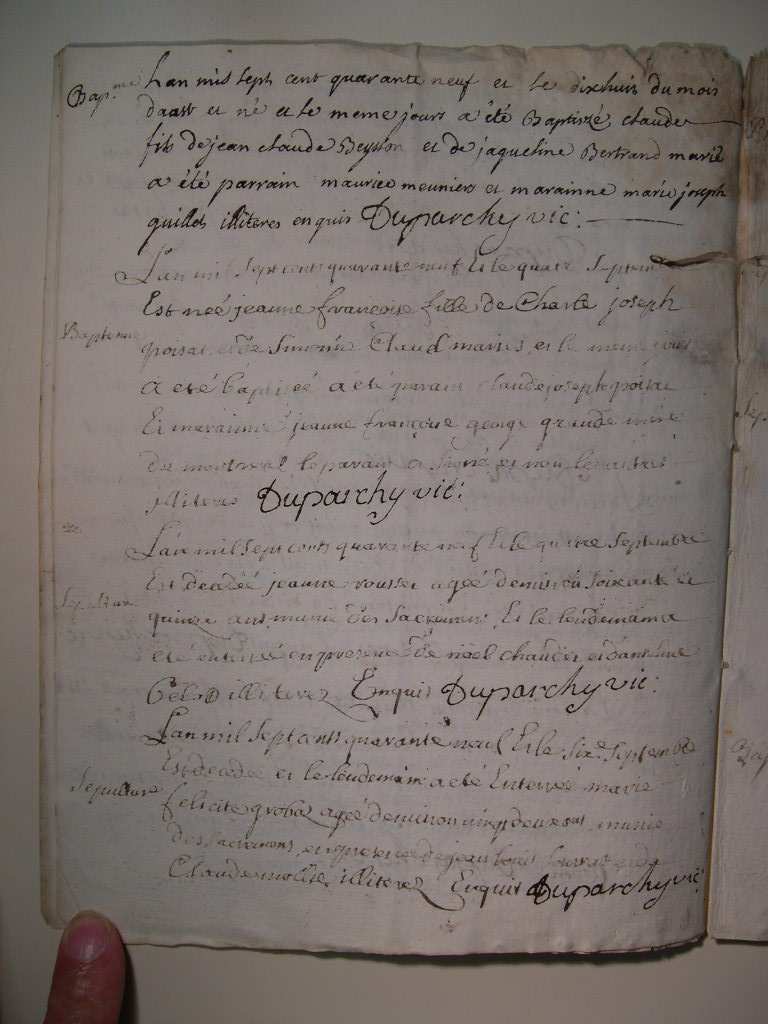 Bap.me Lan mil sept cent quarante neuf et le dixhuit du mois
daast et né et le meme jours a été Baptizé claude
fils de jean claude Beysson et de jaqueline Bertrand marié
a été parrain maurice meuniers et marainne marie joseph
quillot illiteres enquis Duparchy vic:
Lan mil sept cents quarante neuf Et le quatr septem
Est neé jeanne francoise fille de Charle joseph
Bapteme et de Simonne Claud mairies, et le meme jour
a eté baptiseé a eté parain claude joseph
Et maraine jeanne françoise george grande mere
de montreal le parain a signé et non les autres
illiteres Duparchy vic:
Lan mil sept cents quarante neuf Et le septembre
Sepulture Est decedeé jeanne rousset ageé denviron soixante et
quinze ans munie des sacremens, Et le lendemain a
eté enterreé en presence de noel et
illiterez Enquis Duparchy vic:
Lan mil sept cents quarante neuf Et le six septembre
Sepulture Est decedeé et le lendemain a eté Enterreé marie
felicité groboz ageé denviron vingt deux ans, munie
des sacremens, en presence de jean louis et de
Claude illiterez Enquis Duparchy vic: